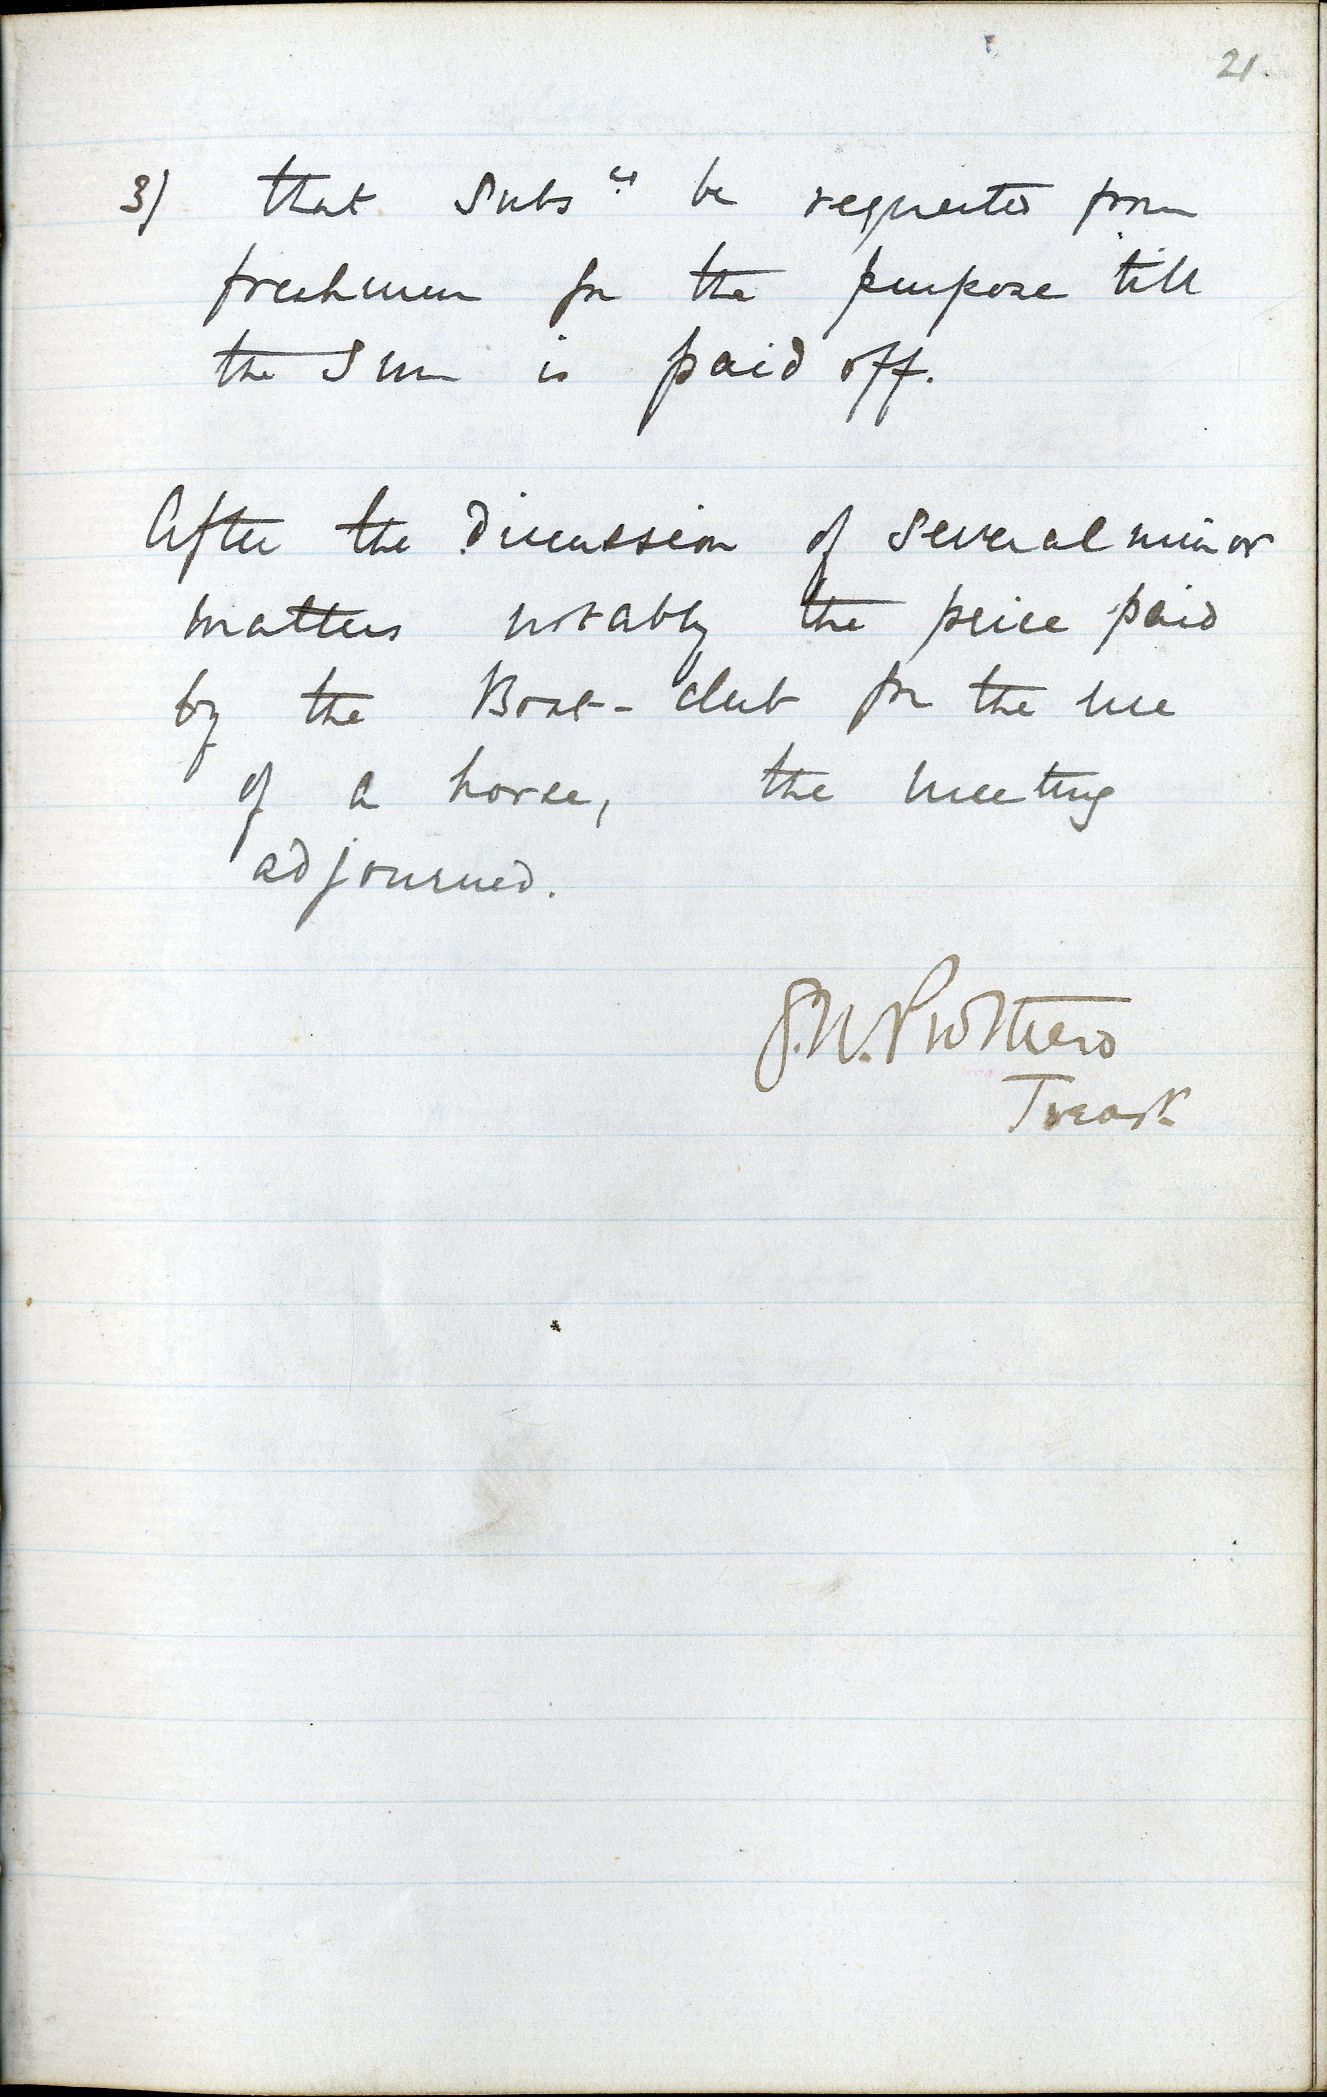 21.
3) that Subs^ns be requested from
freshmen for the purpose till
the Sum is paid off.
After the Discussion of several minor
matters notably the price paid
by the Boat-club for the use
of a horse, the meeting
adjourned.
G.W. Prothero
Treasr